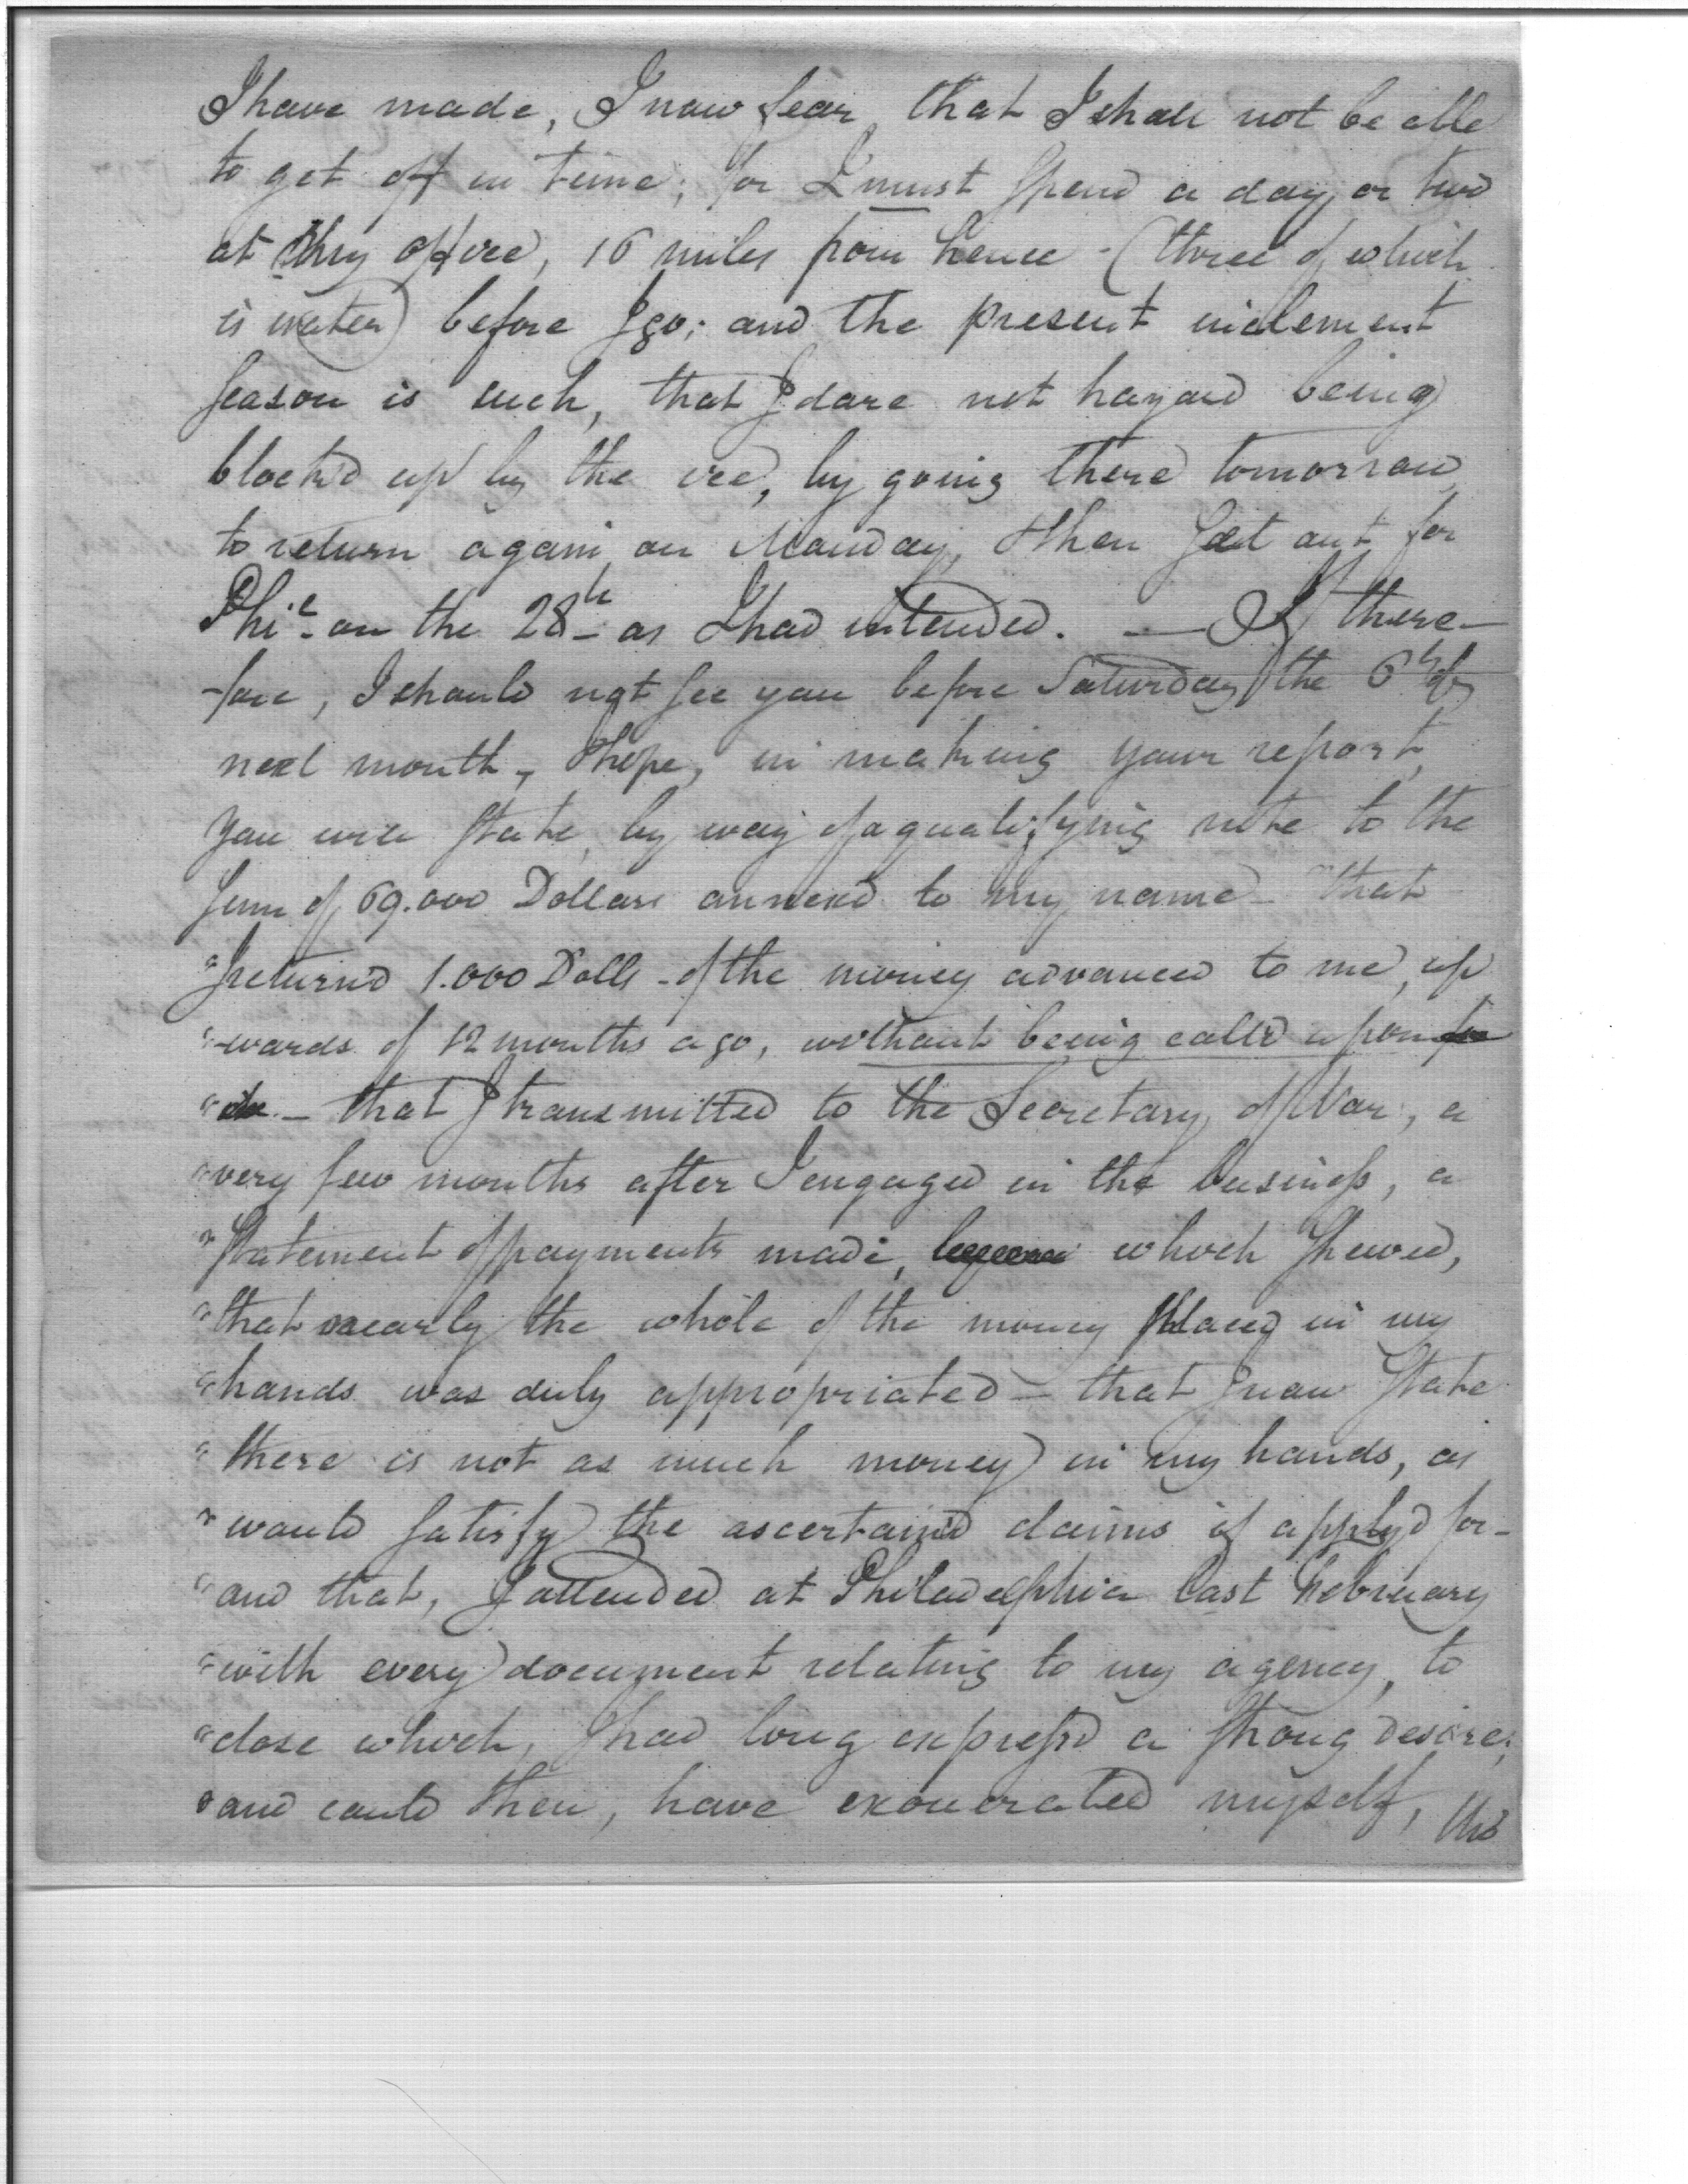 I have made, I now fear, that I shall not be able
to get off in time; for I must spend a day or two
at my office, 16 miles from hence - (three of which
is water) before I go; and the present inclement
season is such, that I dare not hazard being
block'd up by the ice, by going there tomorrow
to return again on Monday, & then set out for
Phil- on the 28th as I had intended. — If there-
-fore, I should not see you before Saturday the 6th of
next month, I hope, in making your report,
you will state, by way of a qualifying note to the
sum of 69.000 Dollars annex'd to my name - "that
"I return'd 1.000 Dolls - of the money advanced to me, up
"-wards of 12 months ago, without being call'd upon for
" - that I transmitted to the Secretary of War, a
"very few months after I engaged in the business, a
"Statement of payments made, which shewed,
"that nearly the whole of the money placed in my
"hands was duly appropriated - that I now state
"there is not as much money in my hands, as
"would satisfy the ascertain'd claims if apply'd for -
"and that, I attended at Philadelphia last February
"with every document relating to my agency, to
"close which, I had long express'd a strong desire;
"and could then, have exonerated myself,